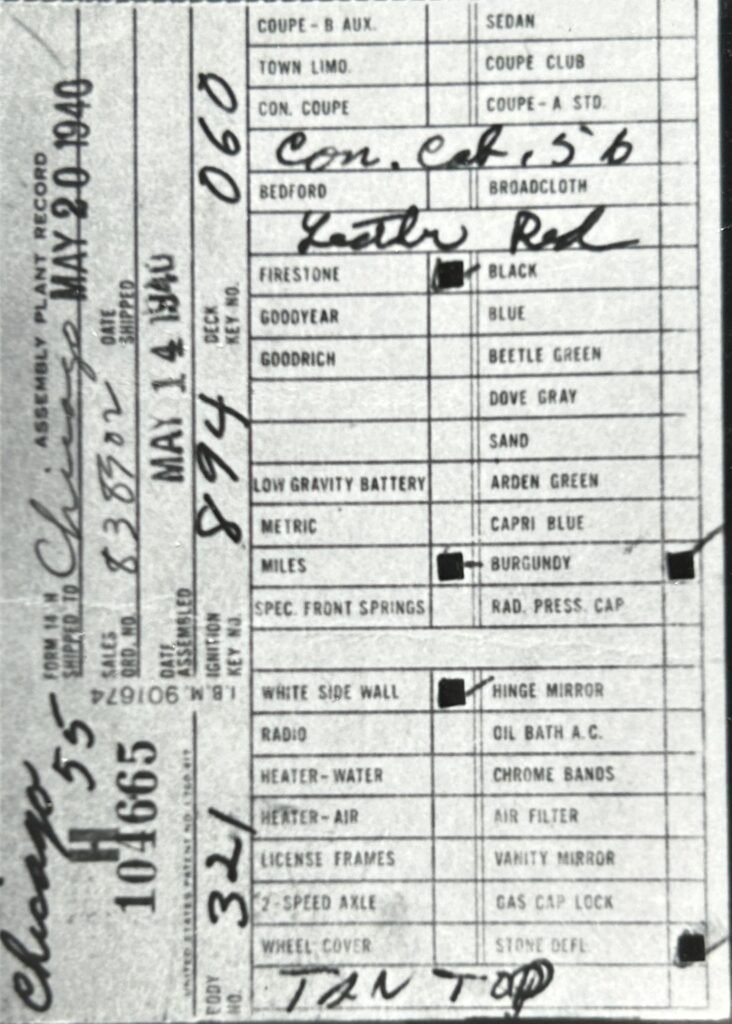 Chicago 55
H
104665
FORM 14 H ASSEMBLY PLANT RECORD
SHIPPED TO Chicago MAY 20 1940
SALES ORD. NO. 838302 DATE SHIPPED
DATE ASSEMBLED MAY 14 1940
I.B.M. 901674
BODY NO. 321 IGNITION KEY NO. 894 DECK KEY NO. 060
COUPE-B AUX. SEDAN
TOWN LIMO. COUPE CLUB
CON. COUPE COUPE-A STD.
Con. Cab. 56
BEDFORD BROADCLOTH
Leather Red
FIRESTONE BLACK
GOODYEAR BLUE
GOODRICH BEETLE GREEN
DOVE GRAY
SAND
LOW GRAVITY BATTERY ARDEN GREEN
METRIC CAPRI BLUE
MILES BURGUNDY
SPEC. FRONT SPRINGS RAD. PRESS. CAP
WHITE SIDE WALL HINGE MIRROR
RADIO OIL BATH A.C.
HEATER-WATER CHROME BANDS
HEATER-AIR AIR FILTER
LICENSE FRAMES VANITY MIRROR
2-SPEED AXLE GAS CAP LOCK
WHEEL COVER STONE DEFL.
TAN TOP